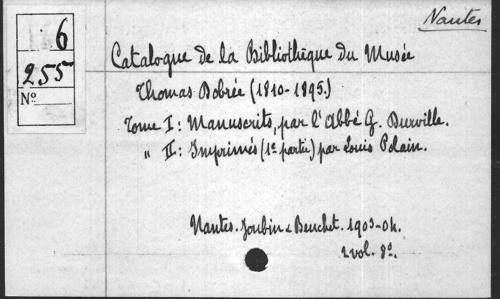 Nantes
6
255
No
Catalogue de la Bibliothèque du Musée
Thomas Dobrée (1810-1895.)
Tome I: Manuscrits, par l'Abbé G. Durville.
" II: Imprimés (1e partie) par Louis Polain.
Nantes. Joubin & Beuchet. 1903-04.
2 vol. 8o.